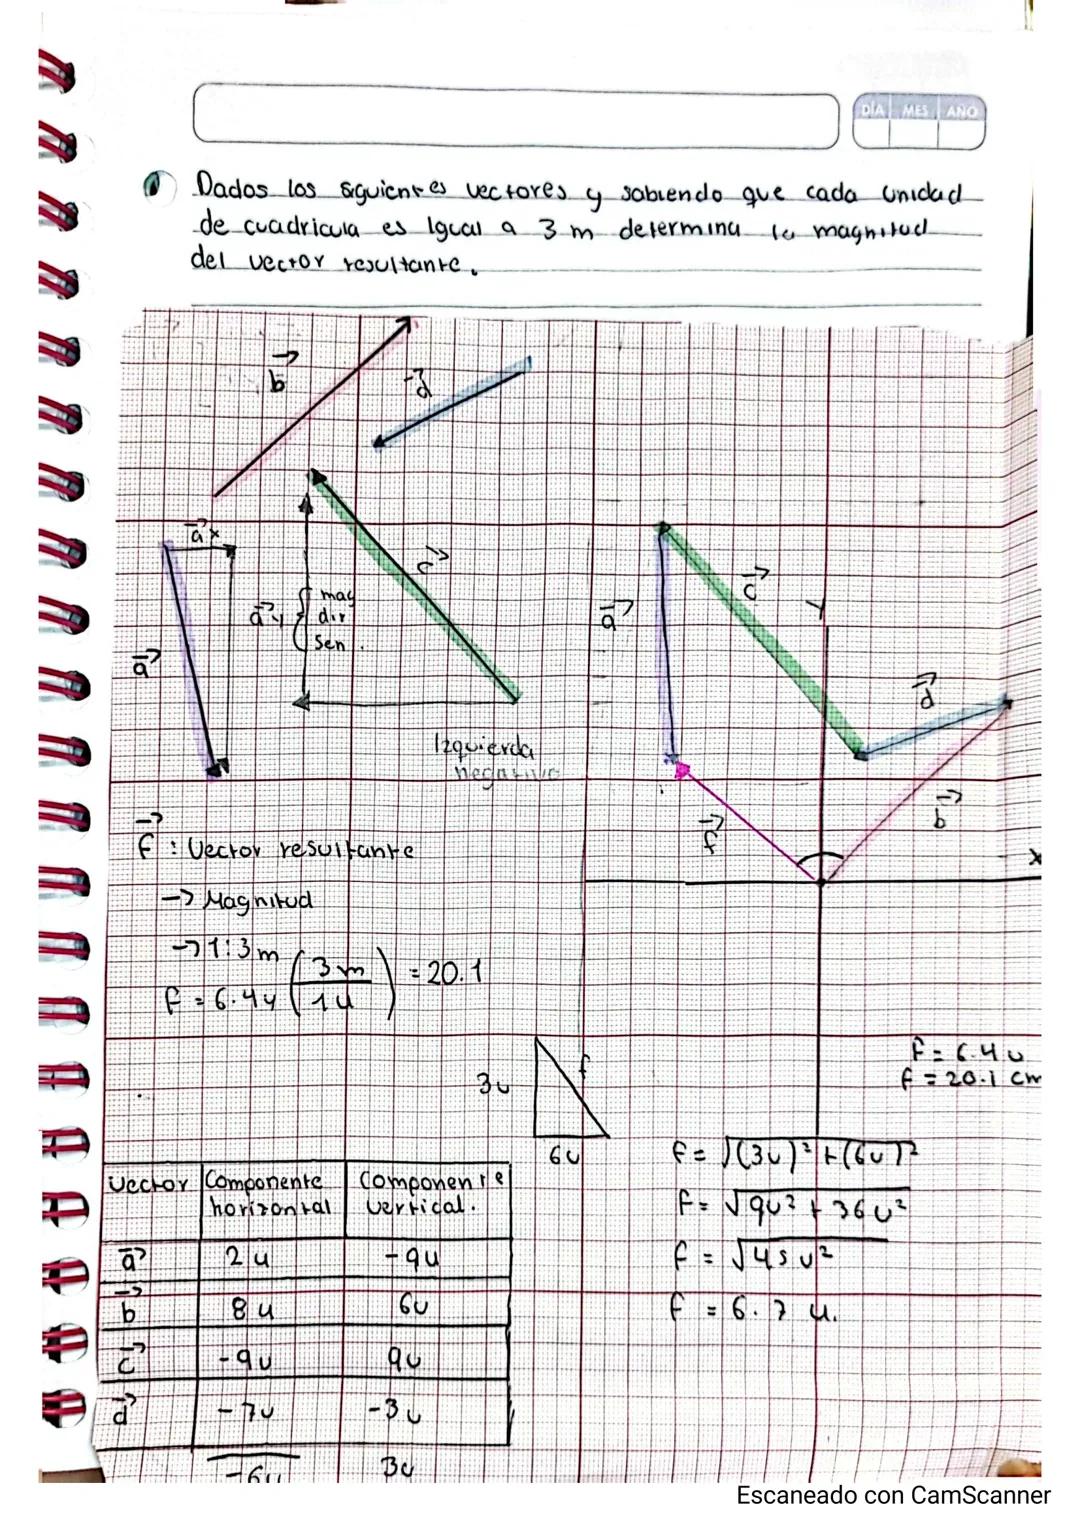 DÍA MES AÑO
Dados los siguientes vectores y sabiendo que cada unidad
de cuadricula es Igual a 3 m determina la magnitud
del vector resultante.
b
-d
a x
c
a y { mag
dir
sen
a
Izquierda
negativo
a
c
y
d
b
f
x
f : Vector resultante
-> Magnitud
-> 1:3m
f = 6.4u (3m/1u) = 20.1
3u
f
6u
f = 6.4u
f = 20.1 cm
f = √(3u)² + (6u)²
f = √9u² + 36u²
f = √45u²
f = 6.7 u.
Vector Componente horizontal Componente vertical.
a 2u -9u
b 8u 6u
c -9u 9u
d -7u -3u
-6u 3u
Escaneado con CamScanner